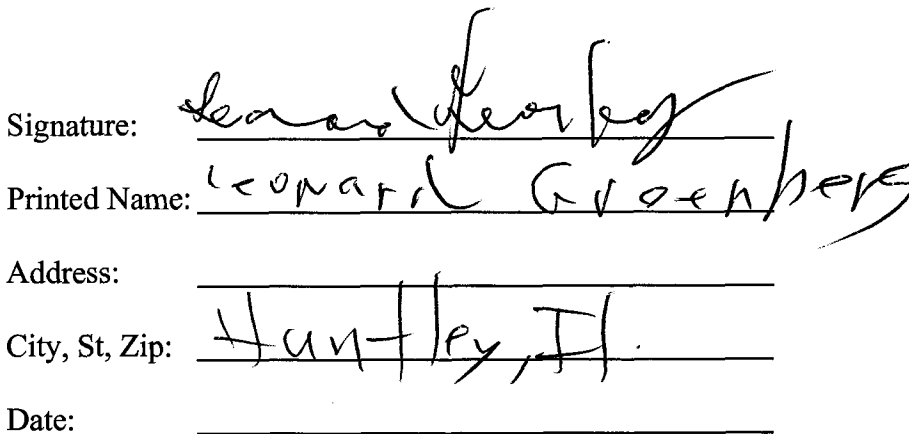 Signature: Leonard Greenberg
Printed Name: Leonard Greenberg
Address:
City, St, Zip: Huntley, Il.
Date: